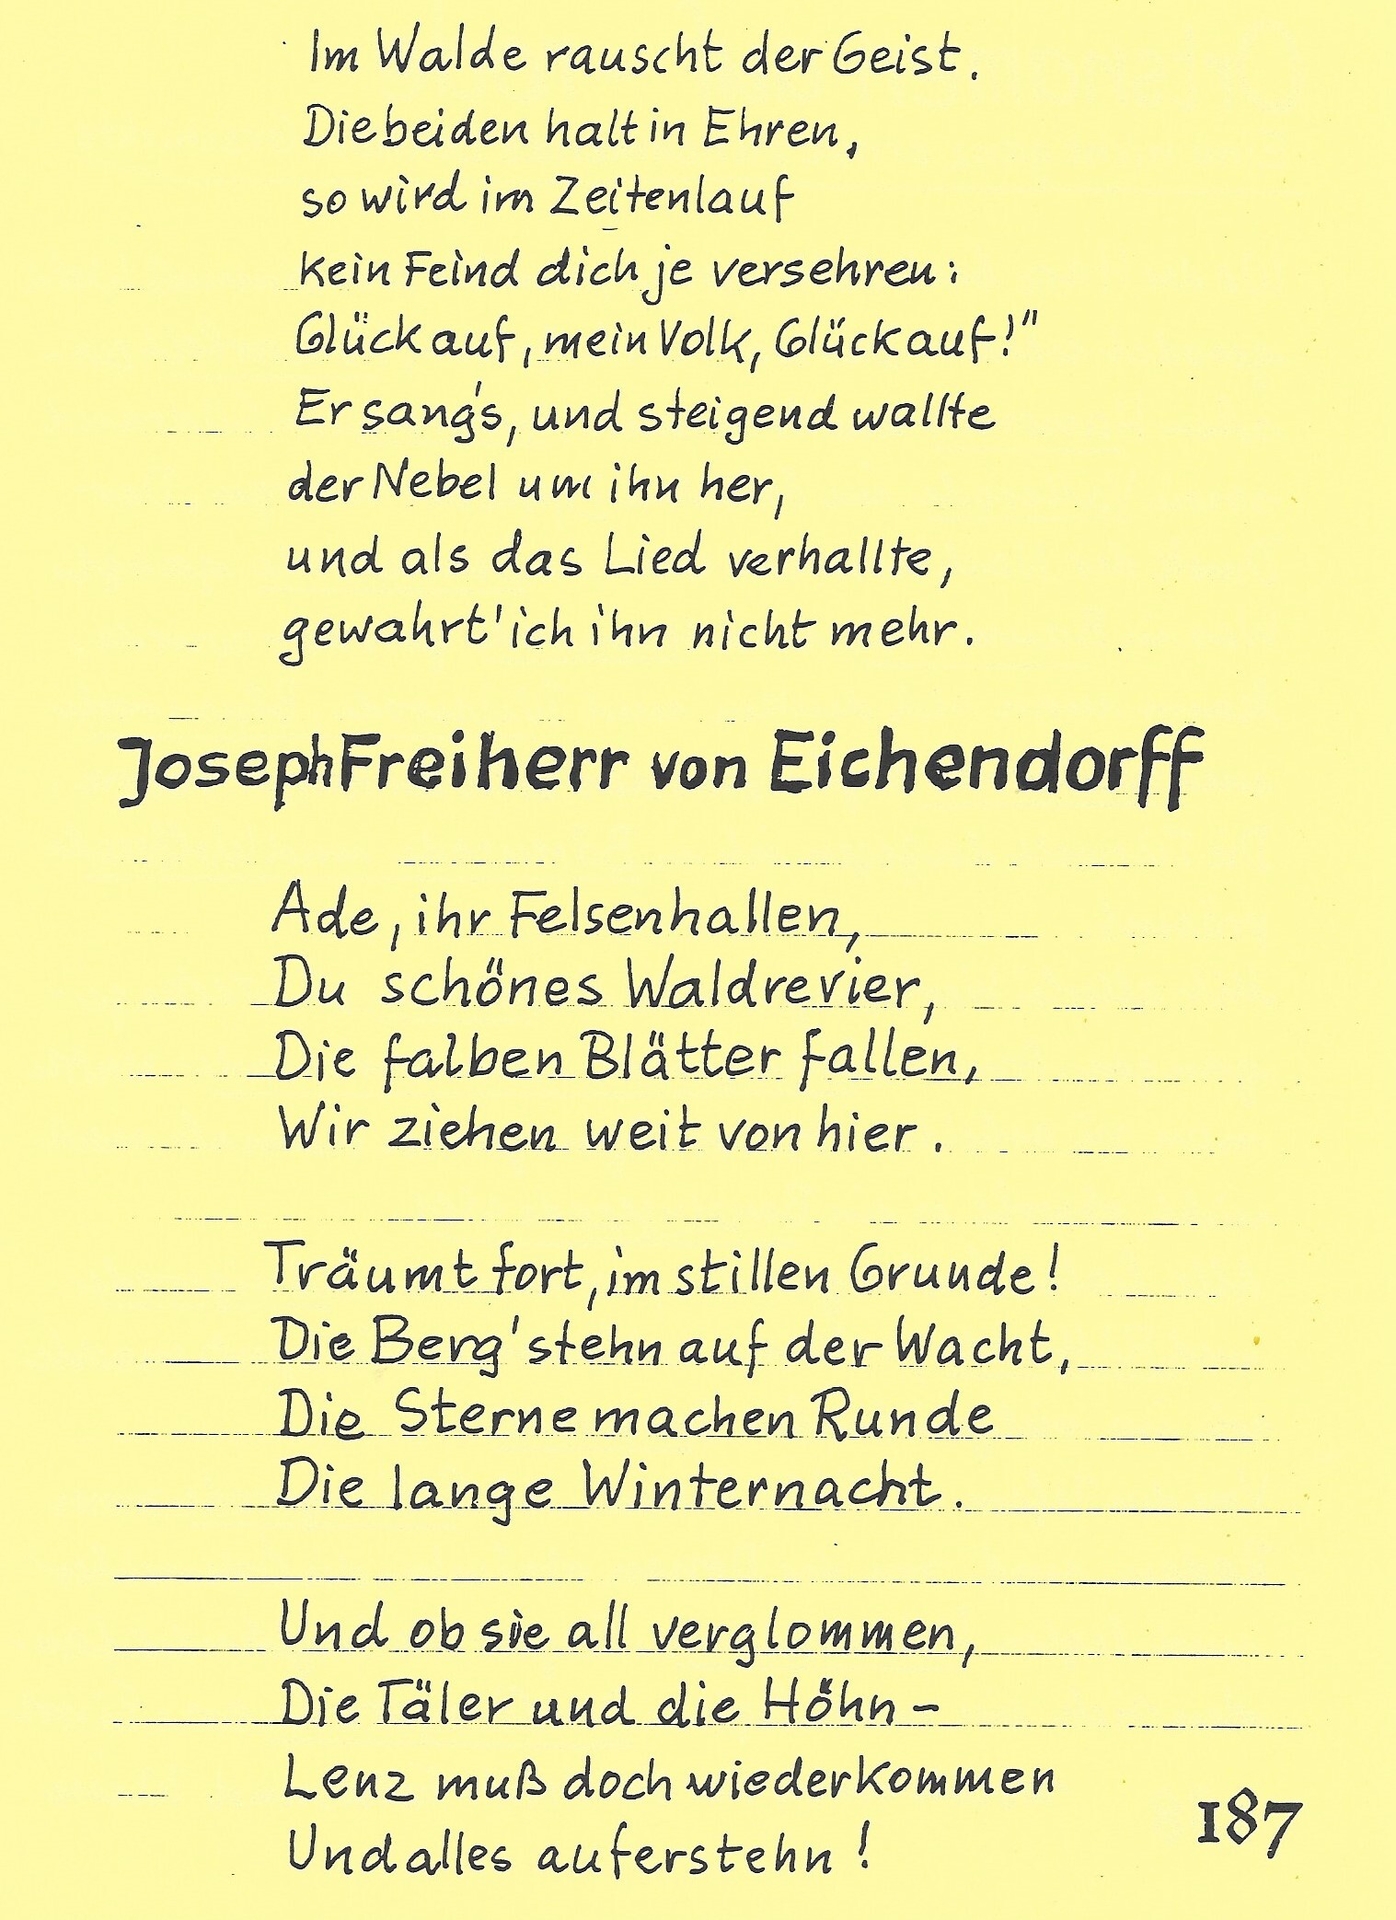 Im Walde rauscht der Geist.
Die beiden halt in Ehren,
so wird im Zeitenlauf
kein Feind dich je versehren:
Glück auf, mein Volk, Glück auf!"
Er sang's, und steigend wallte
der Nebel um ihn her,
und als das Lied verhallte,
gewahrt' ich ihn nicht mehr.
Joseph Freiherr von Eichendorff
Ade, ihr Felsenhallen,
Du schönes Waldrevier,
Die falben Blätter fallen,
Wir ziehen weit von hier.
Träumt fort, im stillen Grunde!
Die Berg' stehn auf der Wacht,
Die Sterne machen Runde
Die lange Winternacht.
Und ob sie all verglommen,
Die Täler und die Höhn –
Lenz muß doch wiederkommen
Und alles auferstehn!
187